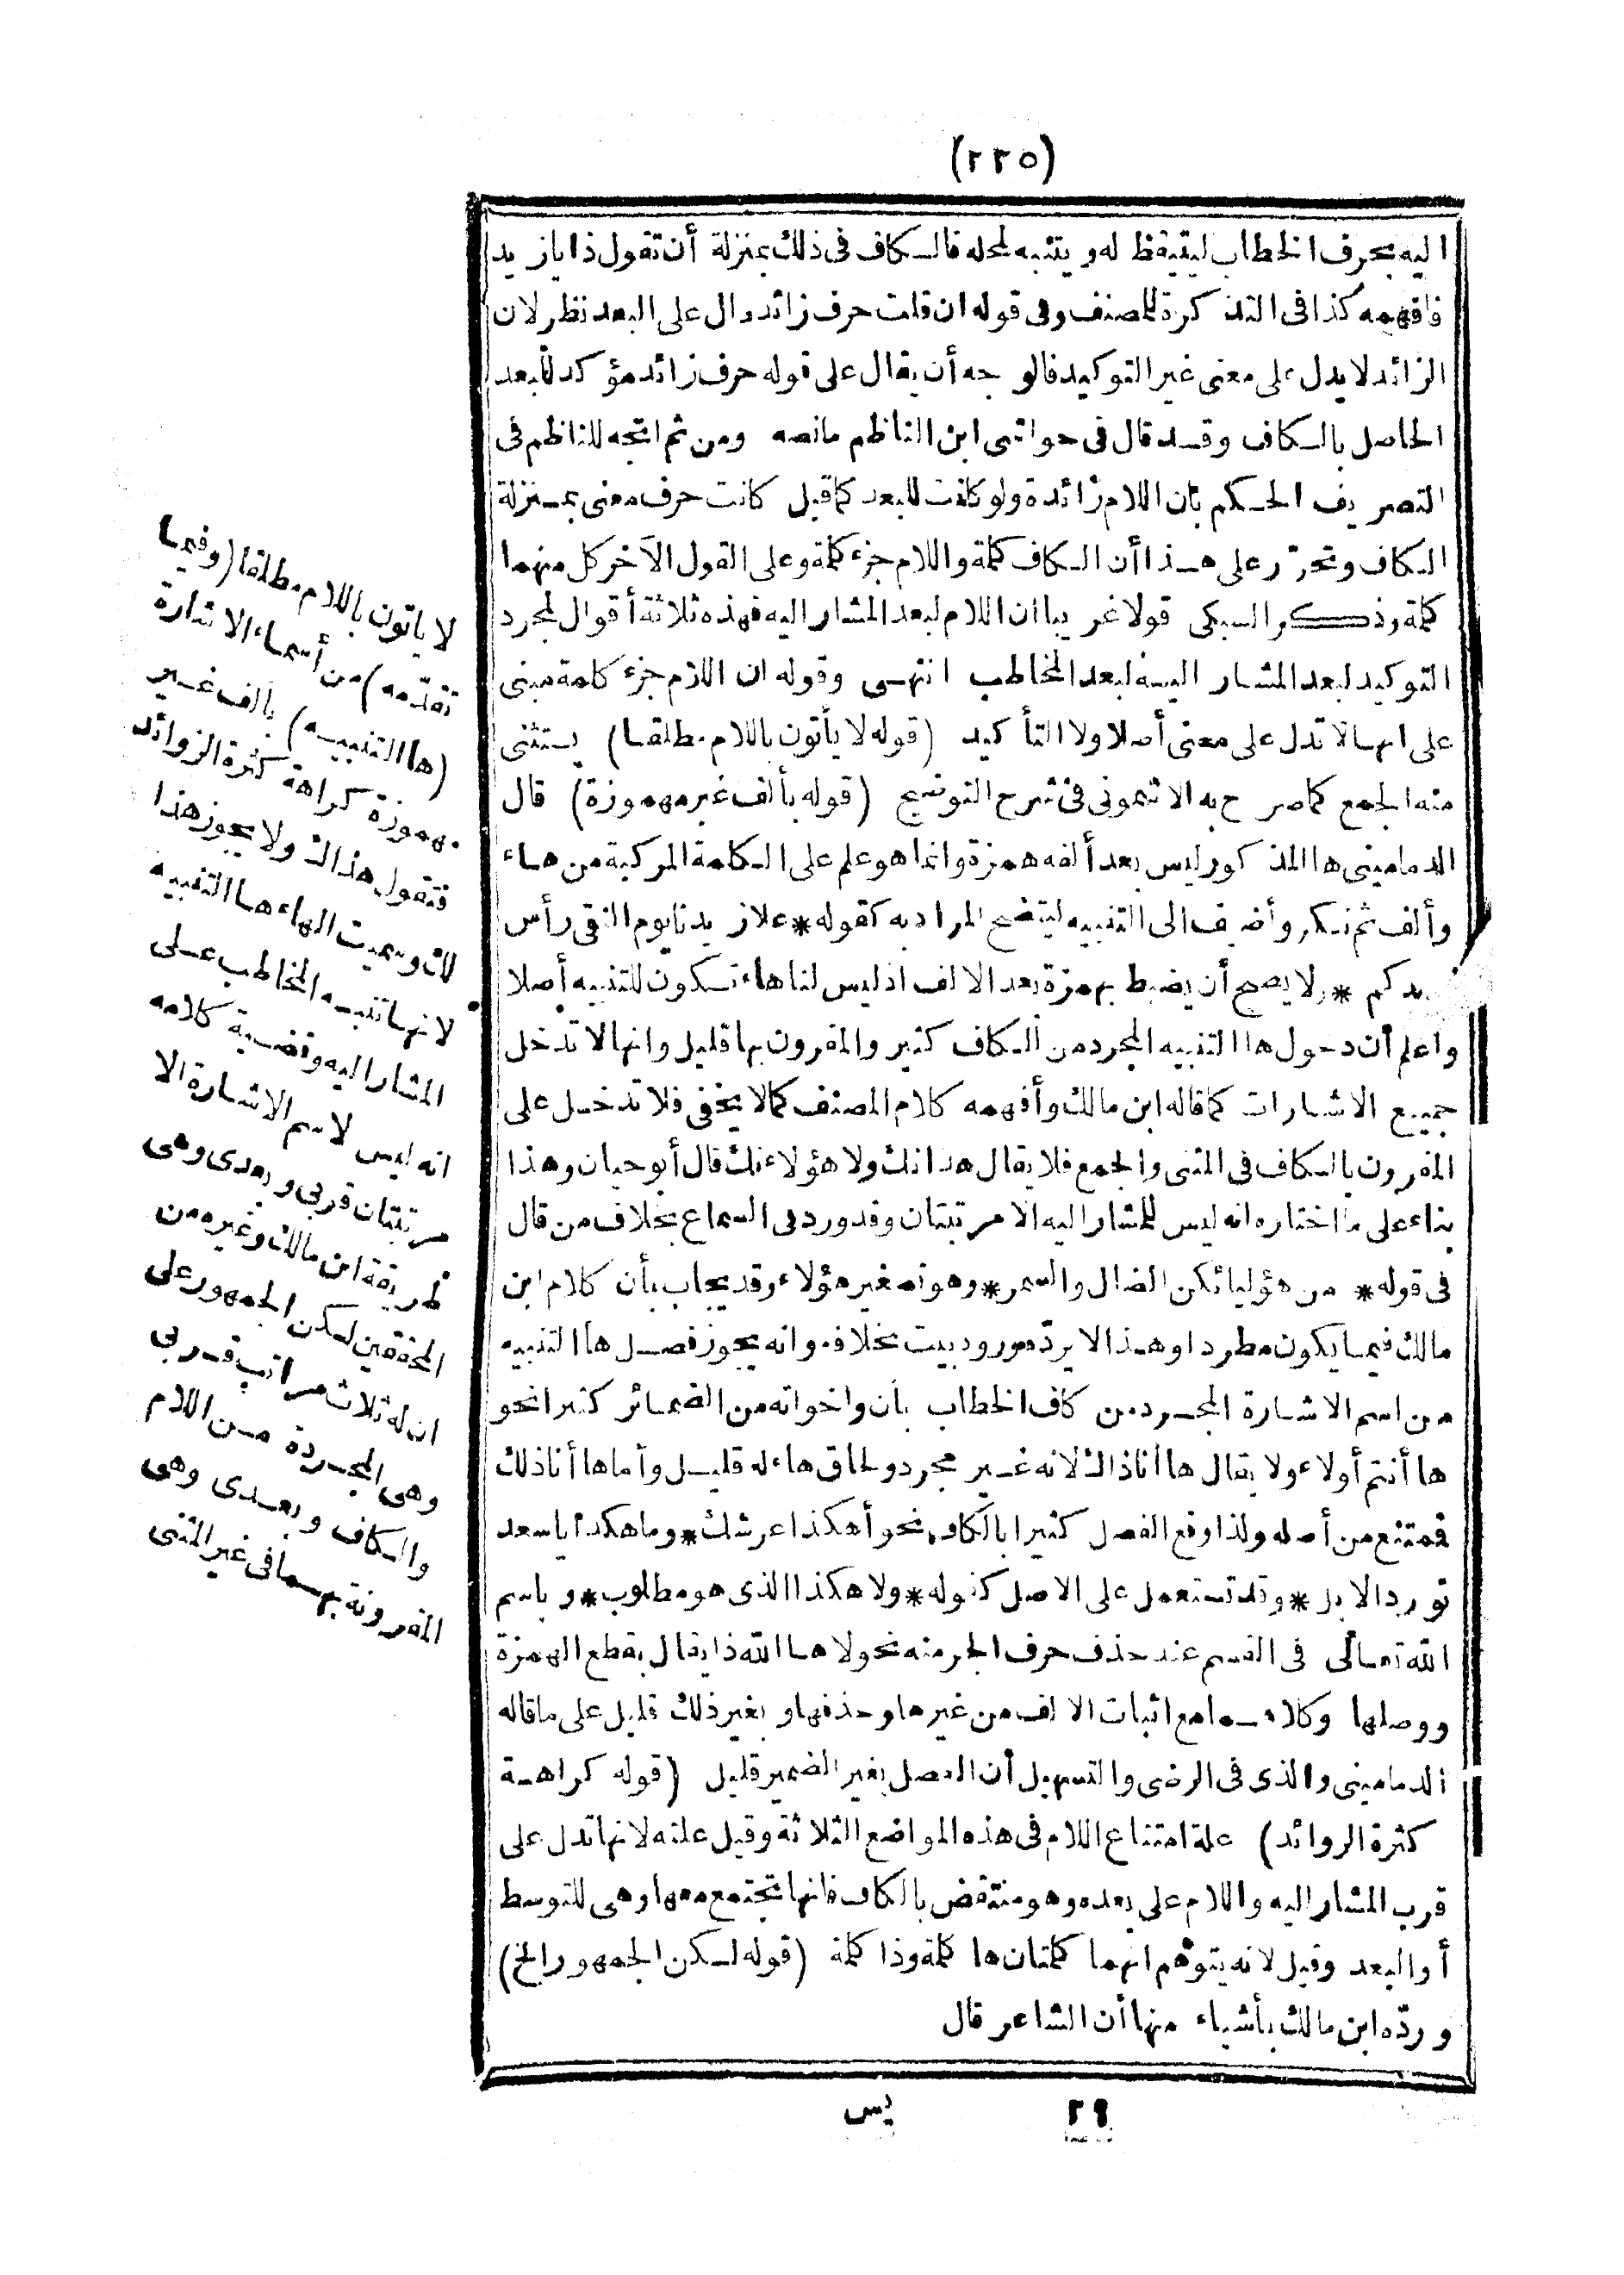 (٢٢٥)
اليه بحرف الخطاب ليتيقظ له ويتنبه لمحله فالكاف فى ذلك بمنزلة أن تقول ذا يا زيد
فافهمه كذا فى التذكرة للمصنف وفى قوله ان قلت حرف زائد دال على البعد نظر لان
الزائد لا يدل على معنى غير التوكيد فالوجه أن يقال على قوله حرف زائد مؤكد للبعد
الحاصل بالكاف وقد قال فى حواشى ابن الناظم مانصه ومن ثم اتجه للناظم فى
التصريف الحكم بأن اللام زائدة ولو كانت للبعد كما قيل كانت حرف معنى بمنزلة
الكاف وتحرّر على هذا أن الكاف كلمة واللام جزء كلمة وعلى القول الآخر كل منهما
كلمة وذكر السبكى قولا غريبا ان اللام لبعد المشار اليه فهذه ثلاثة أقوال لمجرد
التوكيد لبعد المشار اليه لبعد المخاطب انتهى وقوله ان اللام جزء كلمة مبنى
على انها لا تدل على معنى أصلا ولا التأكيد (قوله لا يأتون باللام مطلقا) يستثنى
منه الجمع كما صرح به الاشمونى فى شرح التوضيح (قوله بألف غير مهموزة) قال
الدمامينى ها المذكور ليس بعد ألفه همزة وانما هو علم على الكلمة المركبة من هاء
وألف ثم نكر وأضيف الى التنبيه ليتضح المراد به كقوله * علا زيدنا يوم النقى رأس
زيدكم * ولا يصح أن يضبط بهمزة بعد الالف اذ ليس لنا هاء تكون للتنبيه أصلا
واعلم أن دخول ها التنبيه المجرد من الكاف كثير والمقرون بها قليل وانها لا تدخل
جميع الاشارات كما قاله ابن مالك وأفهمه كلام المصنف كما لا يخفى فلا تدخل على
المقرون بالكاف فى المثنى والجمع فلا يقال هذانك ولا هؤلاءنك قال أبو حيان وهذا
بناء على ما اختاره انه ليس للمشار اليه الا مرتبتان وقد ورد فى السماع بخلاف من قال
فى قوله * من هؤليائكن الضال والسمر * وهو تصغير هؤلاء وقد يجاب بأن كلام ابن
مالك فيما يكون مطردا وهذا لا يردّه ورود بيت بخلافه وانه يجوز فصل ها التنبيه
من اسم الاشارة المجرد من كاف الخطاب بأن واخواته من الضمائر كثيرا نحو
ها أنتم أولاء ولا يقال ها أنا ذاك لانه غير مجرد ولحاق هاء له قليل وأما ها أنا ذلك
فممتنع من أصله ولذا وقع الفصل كثيرا بالكاف نحو أهكذا عرشك * وما هكذا يا سعد
تورد الابل * وقد تستعمل على الاصل كقوله * ولا هكذا الذى هو مطلوب * وباسم
الله تعالى فى القسم عند حذف حرف الجر منه نحو لا ها الله ذا يقال بقطع الهمزة
ووصلها وكلاهما مع اثبات الالف من غيرها وحذفها وبغير ذلك قليل على ما قاله
الدمامينى والذى فى الرضى والتسهيل أن الفصل بغير الضمير قليل (قوله كراهة
كثرة الزوائد) علة امتناع اللام فى هذه المواضع الثلاثة وقيل علته لانها تدل على
قرب المشار اليه واللام على بعده وهو منتقض بالكاف فانها تجتمع معها وهى للتوسط
أو البعد وقيل لانه يتوهّم انهما كلمتان ها كلمة وذا كلمة (قوله لكن الجمهور الخ)
وردّه ابن مالك بأشياء منها أن الشاعر قال
لا يأتون باللام مطلقا (وفيما
تقدّمه) من أسماء الاشارة
(ها التنبيه) بألف غير
مهموزة كراهة كثرة الزوائد
فتقول هذاك ولا يجوز هذا
لك وسميت الهاء ها التنبيه
لانها تنبه المخاطب على
المشار اليه وقضية كلامه
انه ليس لاسم الاشارة الا
مرتبتان قربى وبعدى وهى
طريقة ابن مالك وغيره من
المحققين لكن الجمهور على
ان له ثلاث مراتب قربى
وهى المجردة من اللام
والكاف وبعدى وهى
المقرونة بهما فى غير المثنى
٢٩ يس